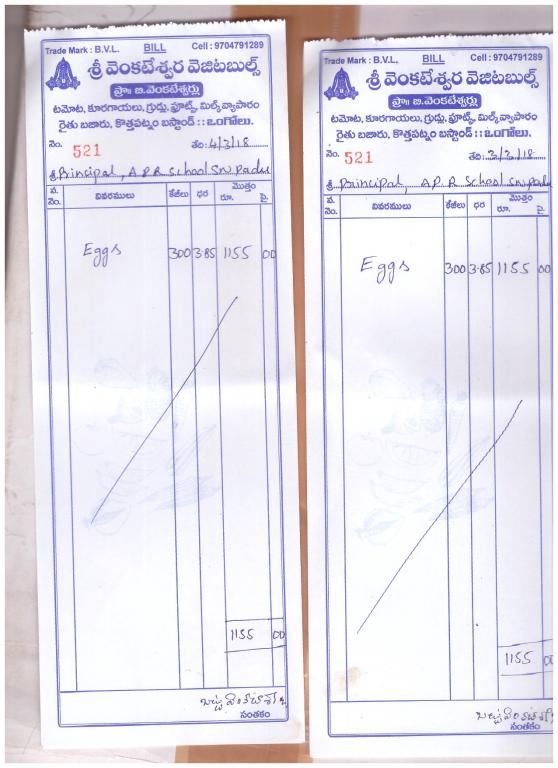 Trade Mark : B.V.L. BILL Cell : 9704791289
శ్రీ వెంకటేశ్వర వెజిటబుల్స్
ప్రొః బి.వెంకటేశ్వర్లు
టమోట, కూరగాయలు, గ్రుడ్లు, ఫ్రూట్స్, మిల్క్ వ్యాపారం
రైతు బజారు, కొత్తపట్నం బస్టాండ్ : : ఒంగోలు.
నెం. 521 తేది: 4/3/18
శ్రీ Principal, A.P.R School S.N Padu
వ. నెం. వివరములు కేజీలు ధర మొత్తం రూ. పై.
Eggs 300 3.85 1155 00
1155 00
సంతకం
Trade Mark : B.V.L. BILL Cell : 9704791289
శ్రీ వెంకటేశ్వర వెజిటబుల్స్
ప్రొః బి.వెంకటేశ్వర్లు
టమోట, కూరగాయలు, గ్రుడ్లు, ఫ్రూట్స్, మిల్క్ వ్యాపారం
రైతు బజారు, కొత్తపట్నం బస్టాండ్ : : ఒంగోలు.
నెం. 521 తేది: 3/3/18
శ్రీ Principal, A.P.R School S.N Padu
వ. నెం. వివరములు కేజీలు ధర మొత్తం రూ. పై.
Eggs 300 3.85 1155 00
1155 00
సంతకం